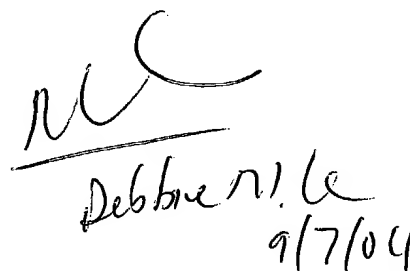 Debbie M. Le
9/7/04